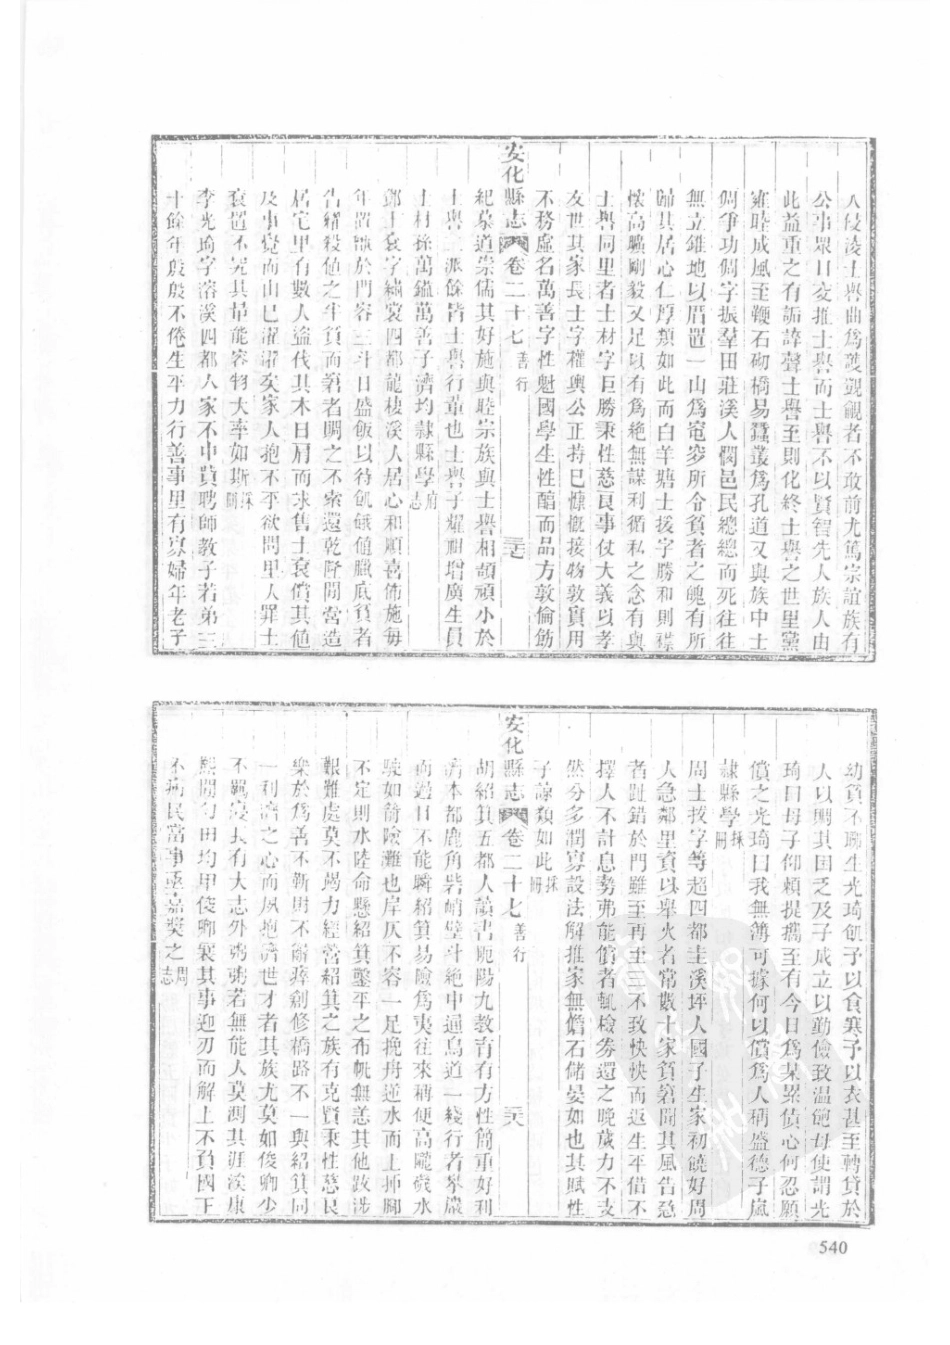 人侵淩士譽曲爲護覬覦者不敢前尤篤宗誼族有
公事眾口交推士譽而士譽不以賢智先人族人由
此益重之有詬誶聲士譽至則化終士譽之世里黨
雍睦成風至鞭石砌橋易蠶叢爲孔道又與族中士
倜爭功倜字振羣田莊溪人憫邑民總總而死往往
無立錐地以厝置一山爲窀穸所令貧者之魄有所
歸其居心仁厚類如此而白羊塘士拔字勝和則襟
懷高曠剛毅又足以有爲絶無謀利循私之念有與
士譽同里者士材字巨勝秉性慈良事仗大義以孝
友世其家長士字權輿公正持己慷慨接物敦實用
不務虛名萬善字性魁國學生性醕而品方敦倫飭
安化縣志 卷二十七 善行 三七
紀慕道崇儒其好施與睦宗族與士譽相頡頏小於
士譽二派餘皆士譽行輩也士譽子燿祖增廣生員
士材孫萬鎰萬善子濟均隸縣學府志
鄧士袞字繡裳四都龍棲溪人居心和順喜佈施每
年置甔於門容三斗日盛飯以待飢餓値臘底貧者
告糴殺値之年貧而窘者賙之不索還乾隆間嘗造
居宅里有數人盜伐其木日肩而求售士袞償其値
及事覺而山已濯濯矣家人抱不平欲問里人罪士
袞置不究其量能容物大率如斯採冊
李光琦字溶溪四都人家不中貲聘師教子若弟三
十餘年殷殷不倦生平力行善事里有寡婦年老子
幼貧不聊生光琦飢予以食寒予以衣甚至轉貸於
人以賙其困乏及子成立以勤儉致温飽母使謂光
琦曰母子仰賴提攜至有今日爲某累債心何忍願
償之光琦曰我無簿可據何以償爲人稱盛德子嵐
隸縣學採冊
周士拔字等超四都圭溪坪人國子生家初饒好周
人急鄰里資以舉火者常數十家貧窘聞其風告急
者趾錯於門雖至再至三不致怏怏而返生平借不
擇人不計息勢弗能償者輒檢劵還之晚歲力不支
然分多潤寡設法解推家無儋石儲晏如也其賦性
子諒類如此採冊
安化縣志 卷二十七 善行 三八
胡紹箕五都人讀書阨陽九教育有方性簡重好利
濟本都鹿角砦峭壁斗絶中通鳥道一綫行者擧儂
而過日不能瞬紹箕易險爲夷往來稱便高隴磢水
駛如箭險灘也岸仄不容一足挽舟逆水而上捕腳
不定則水陸命懸紹箕鑿平之布帆無恙其他跋涉
艱難處莫不竭力經營紹箕之族有克賢秉性慈良
樂於爲善不靳財不辭瘁創修橋路不一與紹箕同
一利濟之心而夙抱濟世才者其族尤莫如俊卿少
不羈寖長有大志外粥粥若無能人莫測其涯涘康
熙間勻田均甲俊卿襄其事迎刃而解上不負國下
不殃民當事亟嘉獎之周志
540